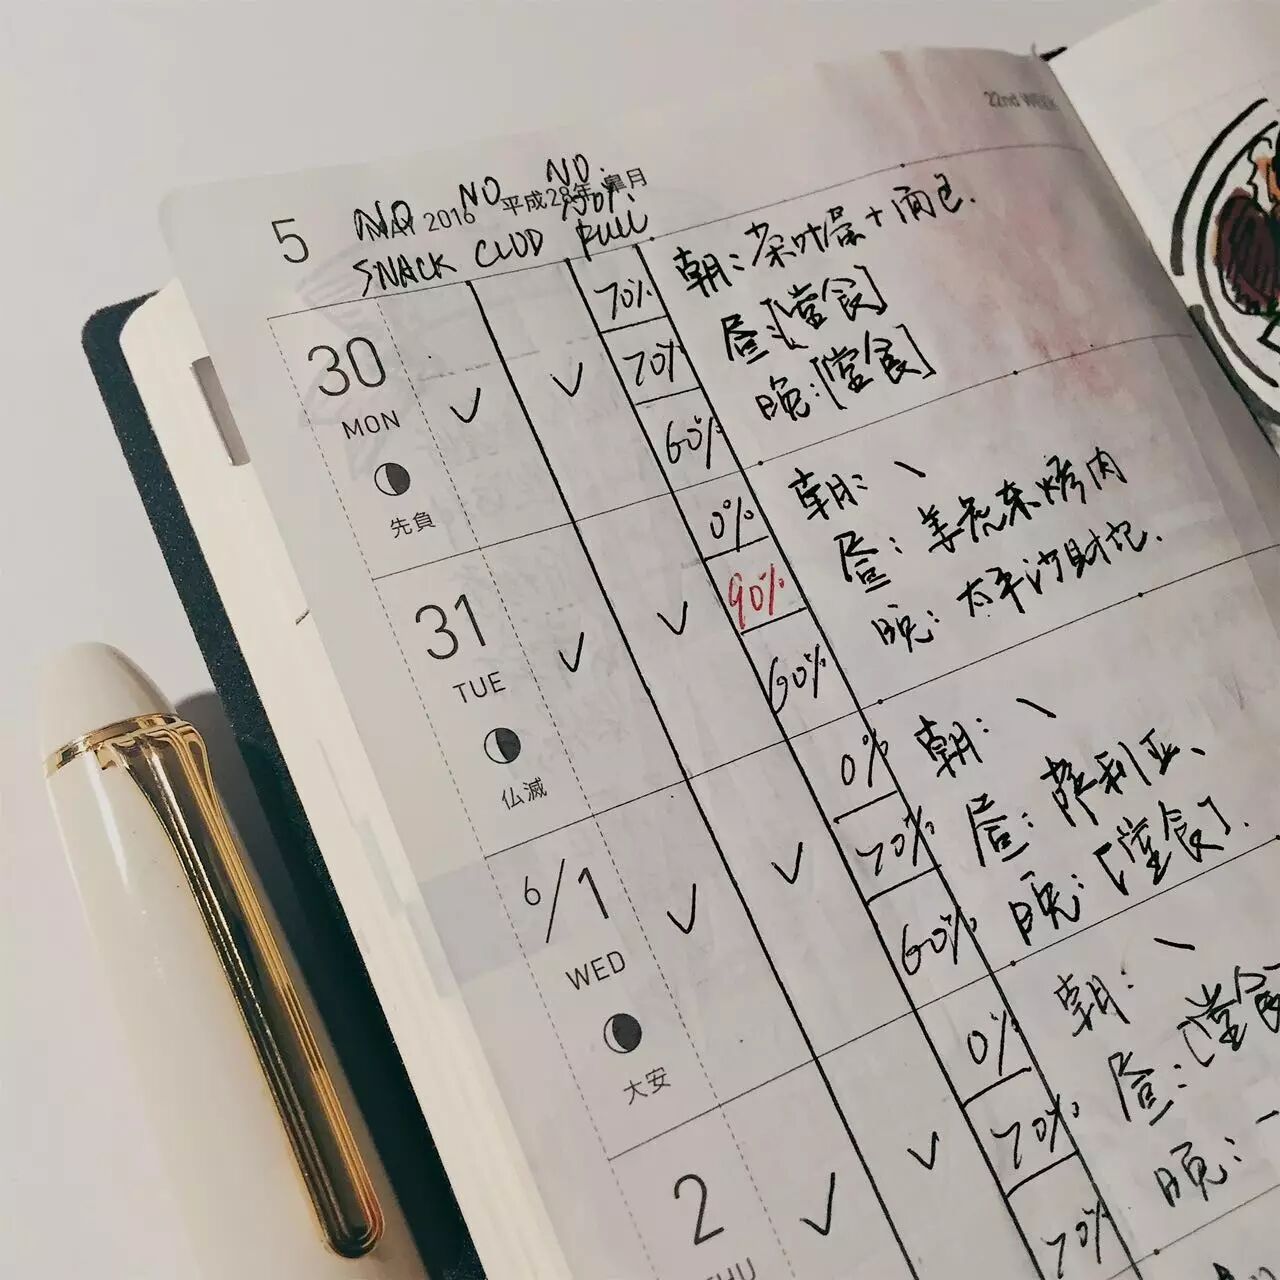 22nd WEEK
NO NO NO.
5 MAY 2016 平成28年 皐月
SNACK FULL
30 MON 先負
70%
70%
60%
朝:茶叶蛋+面包.
昼:[堂食]
晩:[堂食]
31 TUE 仏滅
0%
90%
60%
朝:\
昼:姜虎东烤肉
晩:
6/1 WED 大安
0%
70%
60%
朝:\
昼:萨利亚、
晩:[堂食].
2 THU
0%
70%
70%
朝:\
昼:[堂食
晩: